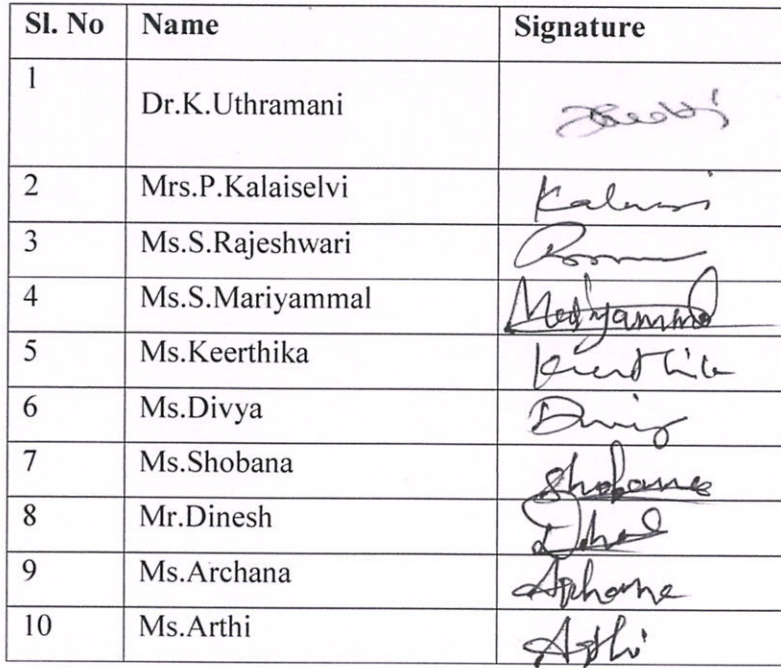 Sl. No Name Signature
1 Dr.K.Uthramani
2 Mrs.P.Kalaiselvi
3 Ms.S.Rajeshwari
4 Ms.S.Mariyammal
5 Ms.Keerthika Keerthika
6 Ms.Divya
7 Ms.Shobana Shobana
8 Mr.Dinesh
9 Ms.Archana Archana
10 Ms.Arthi Arthi